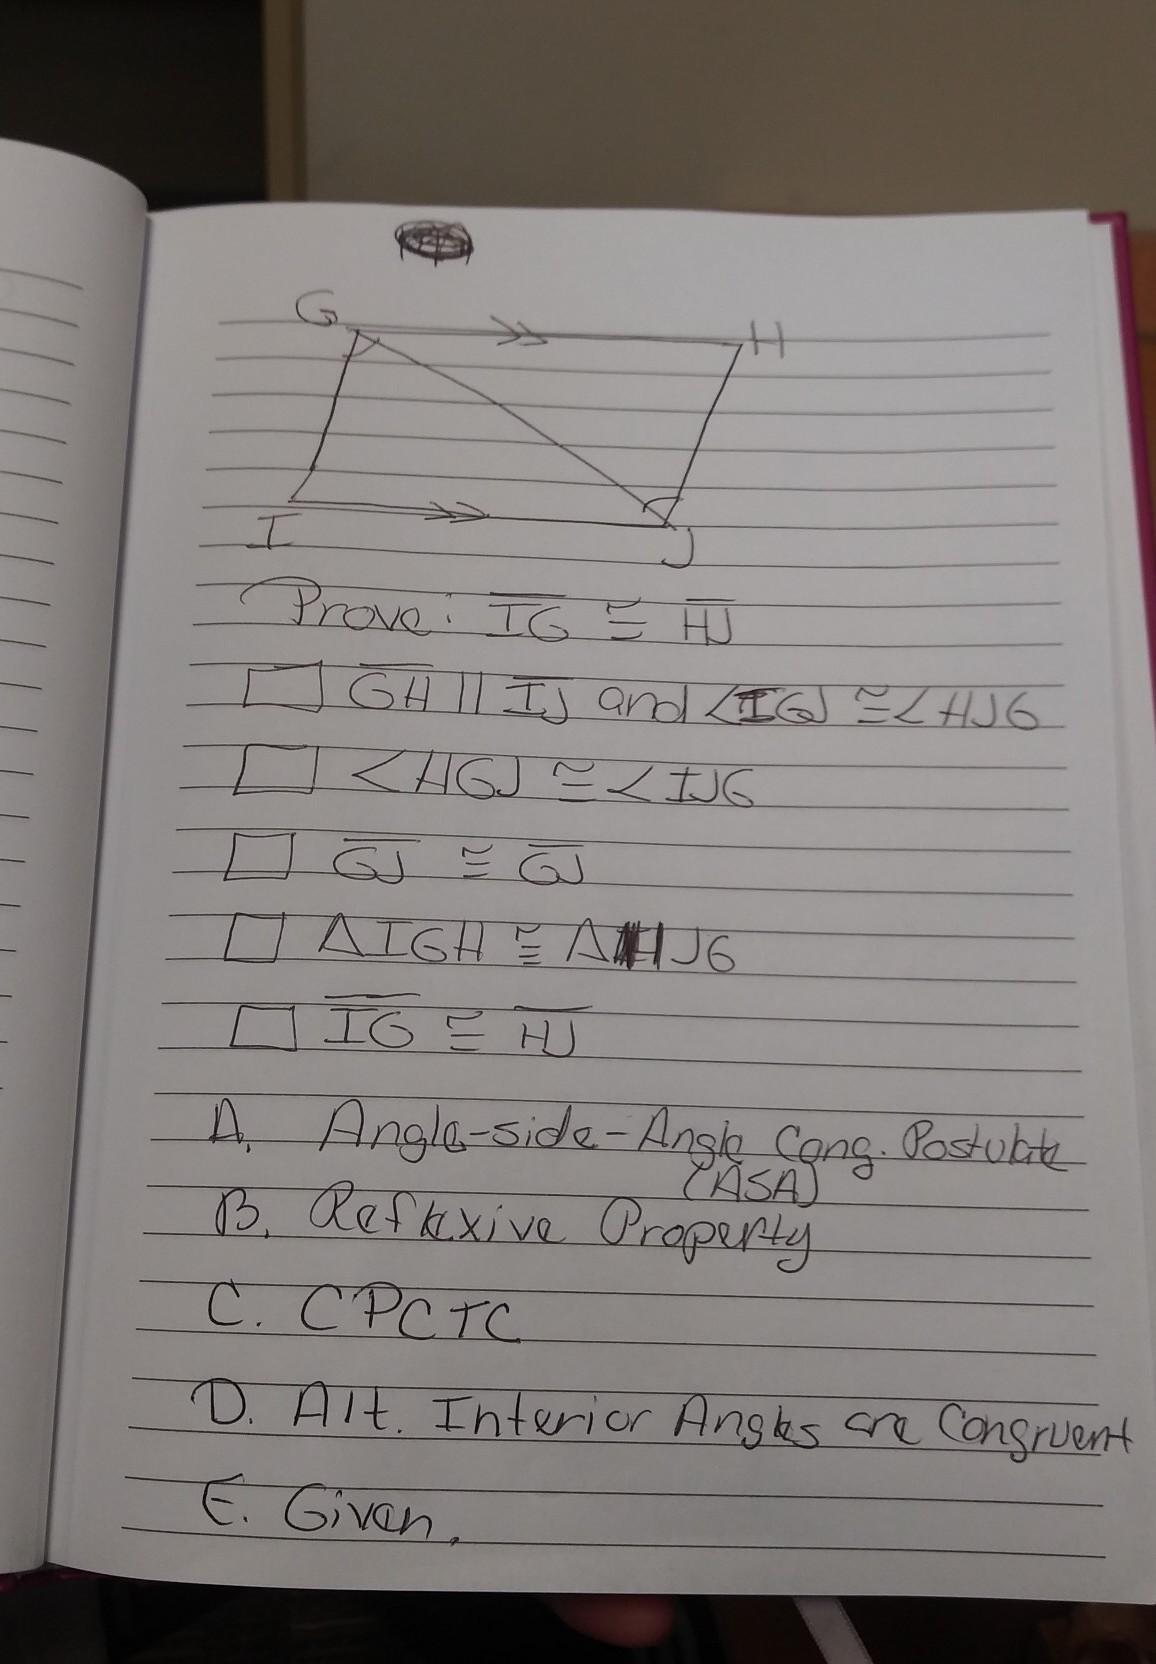 G
H
I
J
Prove: IG ≅ HJ
GH || IJ and <IGJ ≅ <HJG
<HGJ ≅ <IJG
GJ ≅ GJ
ΔIGH ≅ ΔHJG
IG ≅ HJ
A. Angle-side-Angle Cong. Postulate
(ASA)
B. Reflexive Property
C. CPCTC
D. Alt. Interior Angles are Congruent
E. Given.